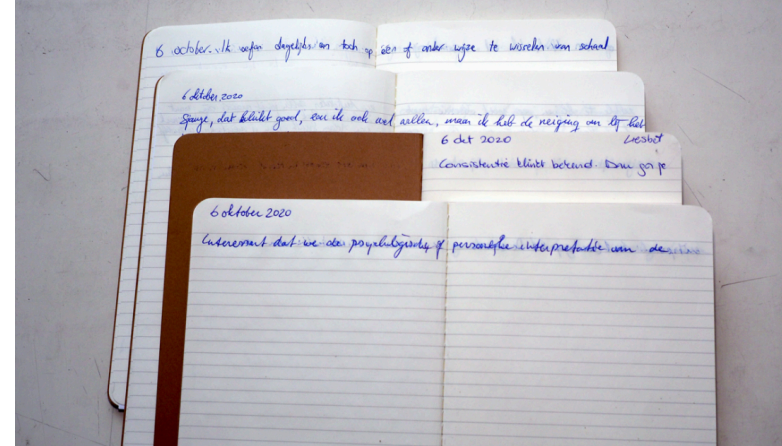 6 october. Ik oefen dagelijks en toch op één of ander wijze te wisselen van schaal
6 oktober, 2020
dat klinkt goed, ik ook wel willen, maar ik heb de neiging om bij het
6 okt 2020 Liesbet
Consistentie klinkt bekend. Dan ga je
6 oktober 2020
Interessant dat we de psychologische of persoonlijke interpretatie van de